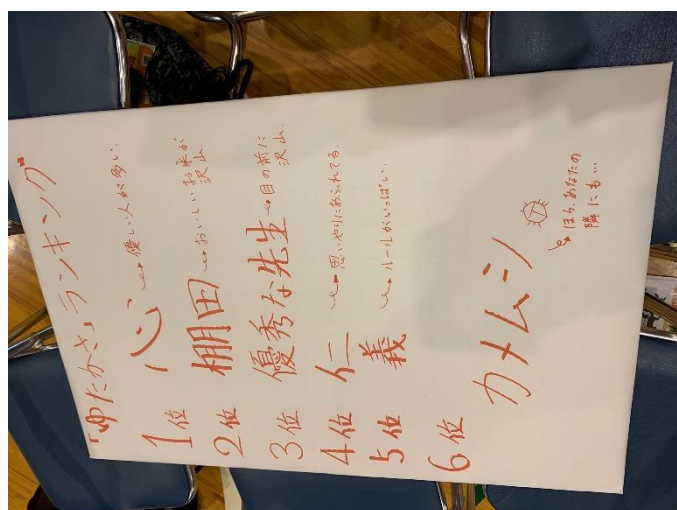 「ゆたかさ」ランキング
1位 心 → 優しい人が多い。
2位 棚田 → おいしいお米が
沢山。
3位 優秀な先生 → 目の前に
沢山。
4位 仁 → 思いやりにあふれてる。
5位 義 → ルールがいっぱい。
6位 カメムシ
→ ほら、あなたの
隣にも…